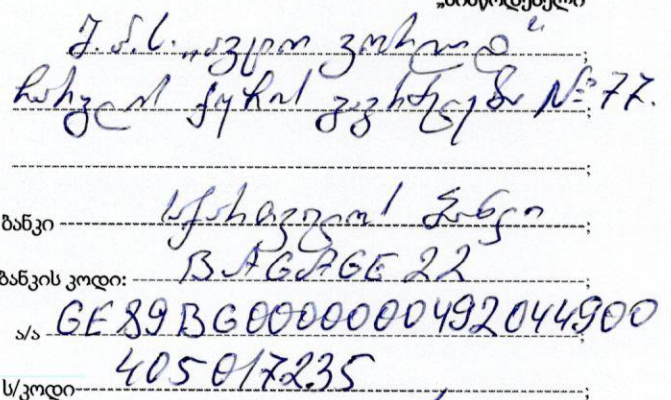 „მიმწოდებელი
შ.პ.ს. „ავტო გორილა“;
ქუჩის გაგრძელება №77.;
ბანკი საქართველოს ბანკი;
ბანკის კოდი: BAGAGE 22;
ა/ა GE89BG0000000492044900
ს/კოდი 405017235;